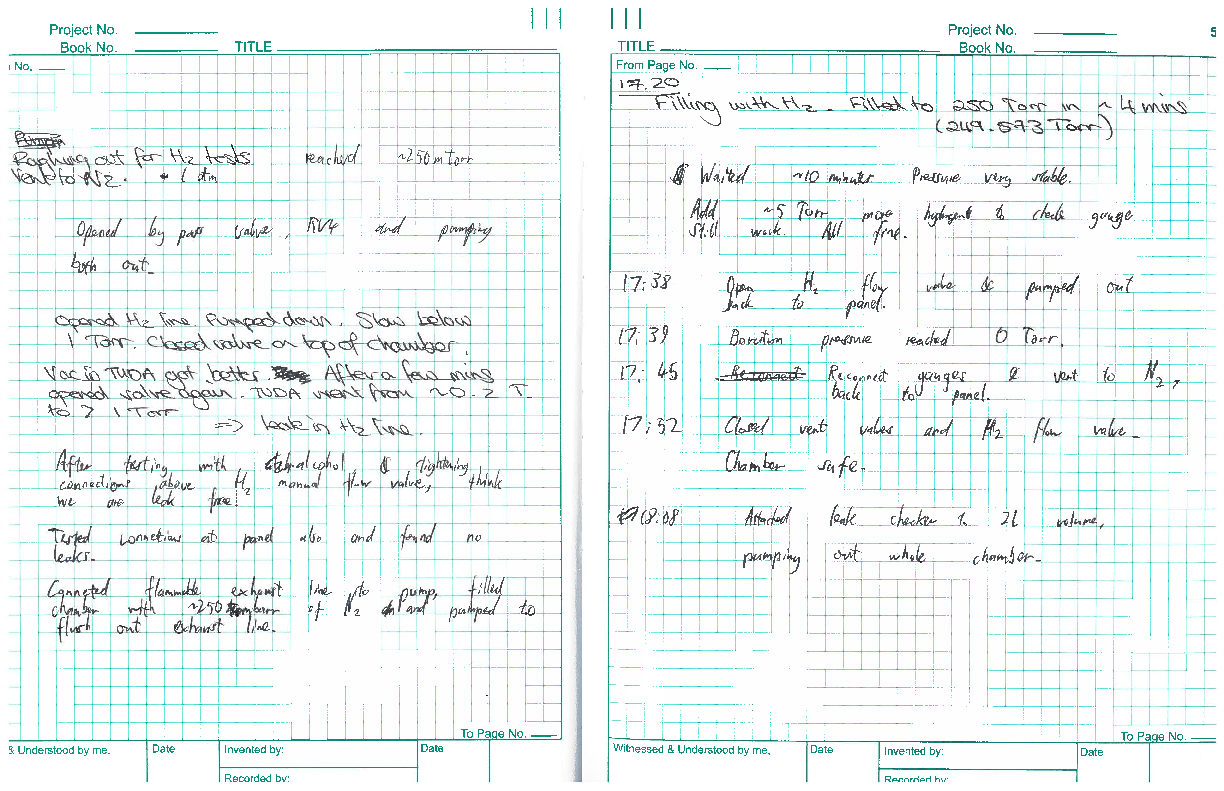 Project No.
Book No. TITLE
No.
Roughing out for H2 tests reached ~250 mTorr
Vent to N2. 1 atm
Opened by pass valve, RV4 and pumping
both out.
Opened H2 line. Pumped down. Slow below
1 Torr. Closed valve on top of chamber.
Vac in TUDA got better. After a few mins
opened valve again. TUDA went from ~0.2 T
to > 1 Torr
=> leak in H2 line.
After testing with alcohol & tightening
connections above H2 manual flow valve, think
we are leak free!
Tested connections at panel also and found no
leaks.
Connected flammable exhaust line to pump, filled
chamber with ~250 of N2 and pumped to
flush out exhaust line.
To Page No.
& Understood by me. Date Invented by: Date
Recorded by:
Project No. 5
TITLE Book No.
From Page No.
17.20
Filling with H2. Filled to 250 Torr in ~4 mins
(249.573 Torr)
Waited ~10 minutes Pressure very stable.
Add ~5 Torr more hydrogent to check gauge
still work. All fine.
17:38 Open H2 flow valve & pumped out
back to panel.
17:39 Baratron pressure reached 0 Torr.
17:45 Reconnect Reconnect gauges & vent to N2,
back to panel.
17:52 Closed vent valves and H2 flow valve.
Chamber safe.
18:08 Attached leak checker to 2L volume,
pumping out whole chamber.
To Page No.
Witnessed & Understood by me. Date Invented by: Date
Recorded by: